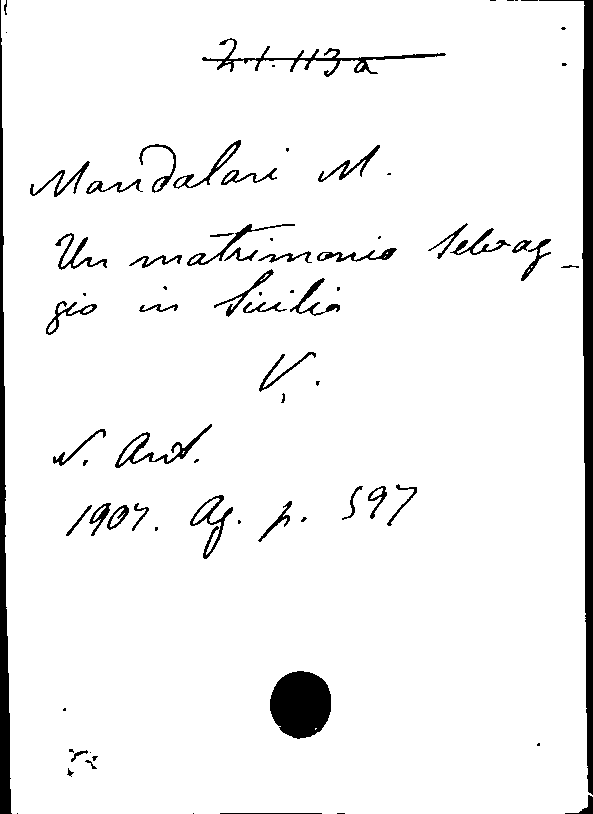 2.1.113 a
Mandalari M.
Un matrimonio selvag_
gio in Sicilia
V.
N. Ant.
1907. Ag. p. 597